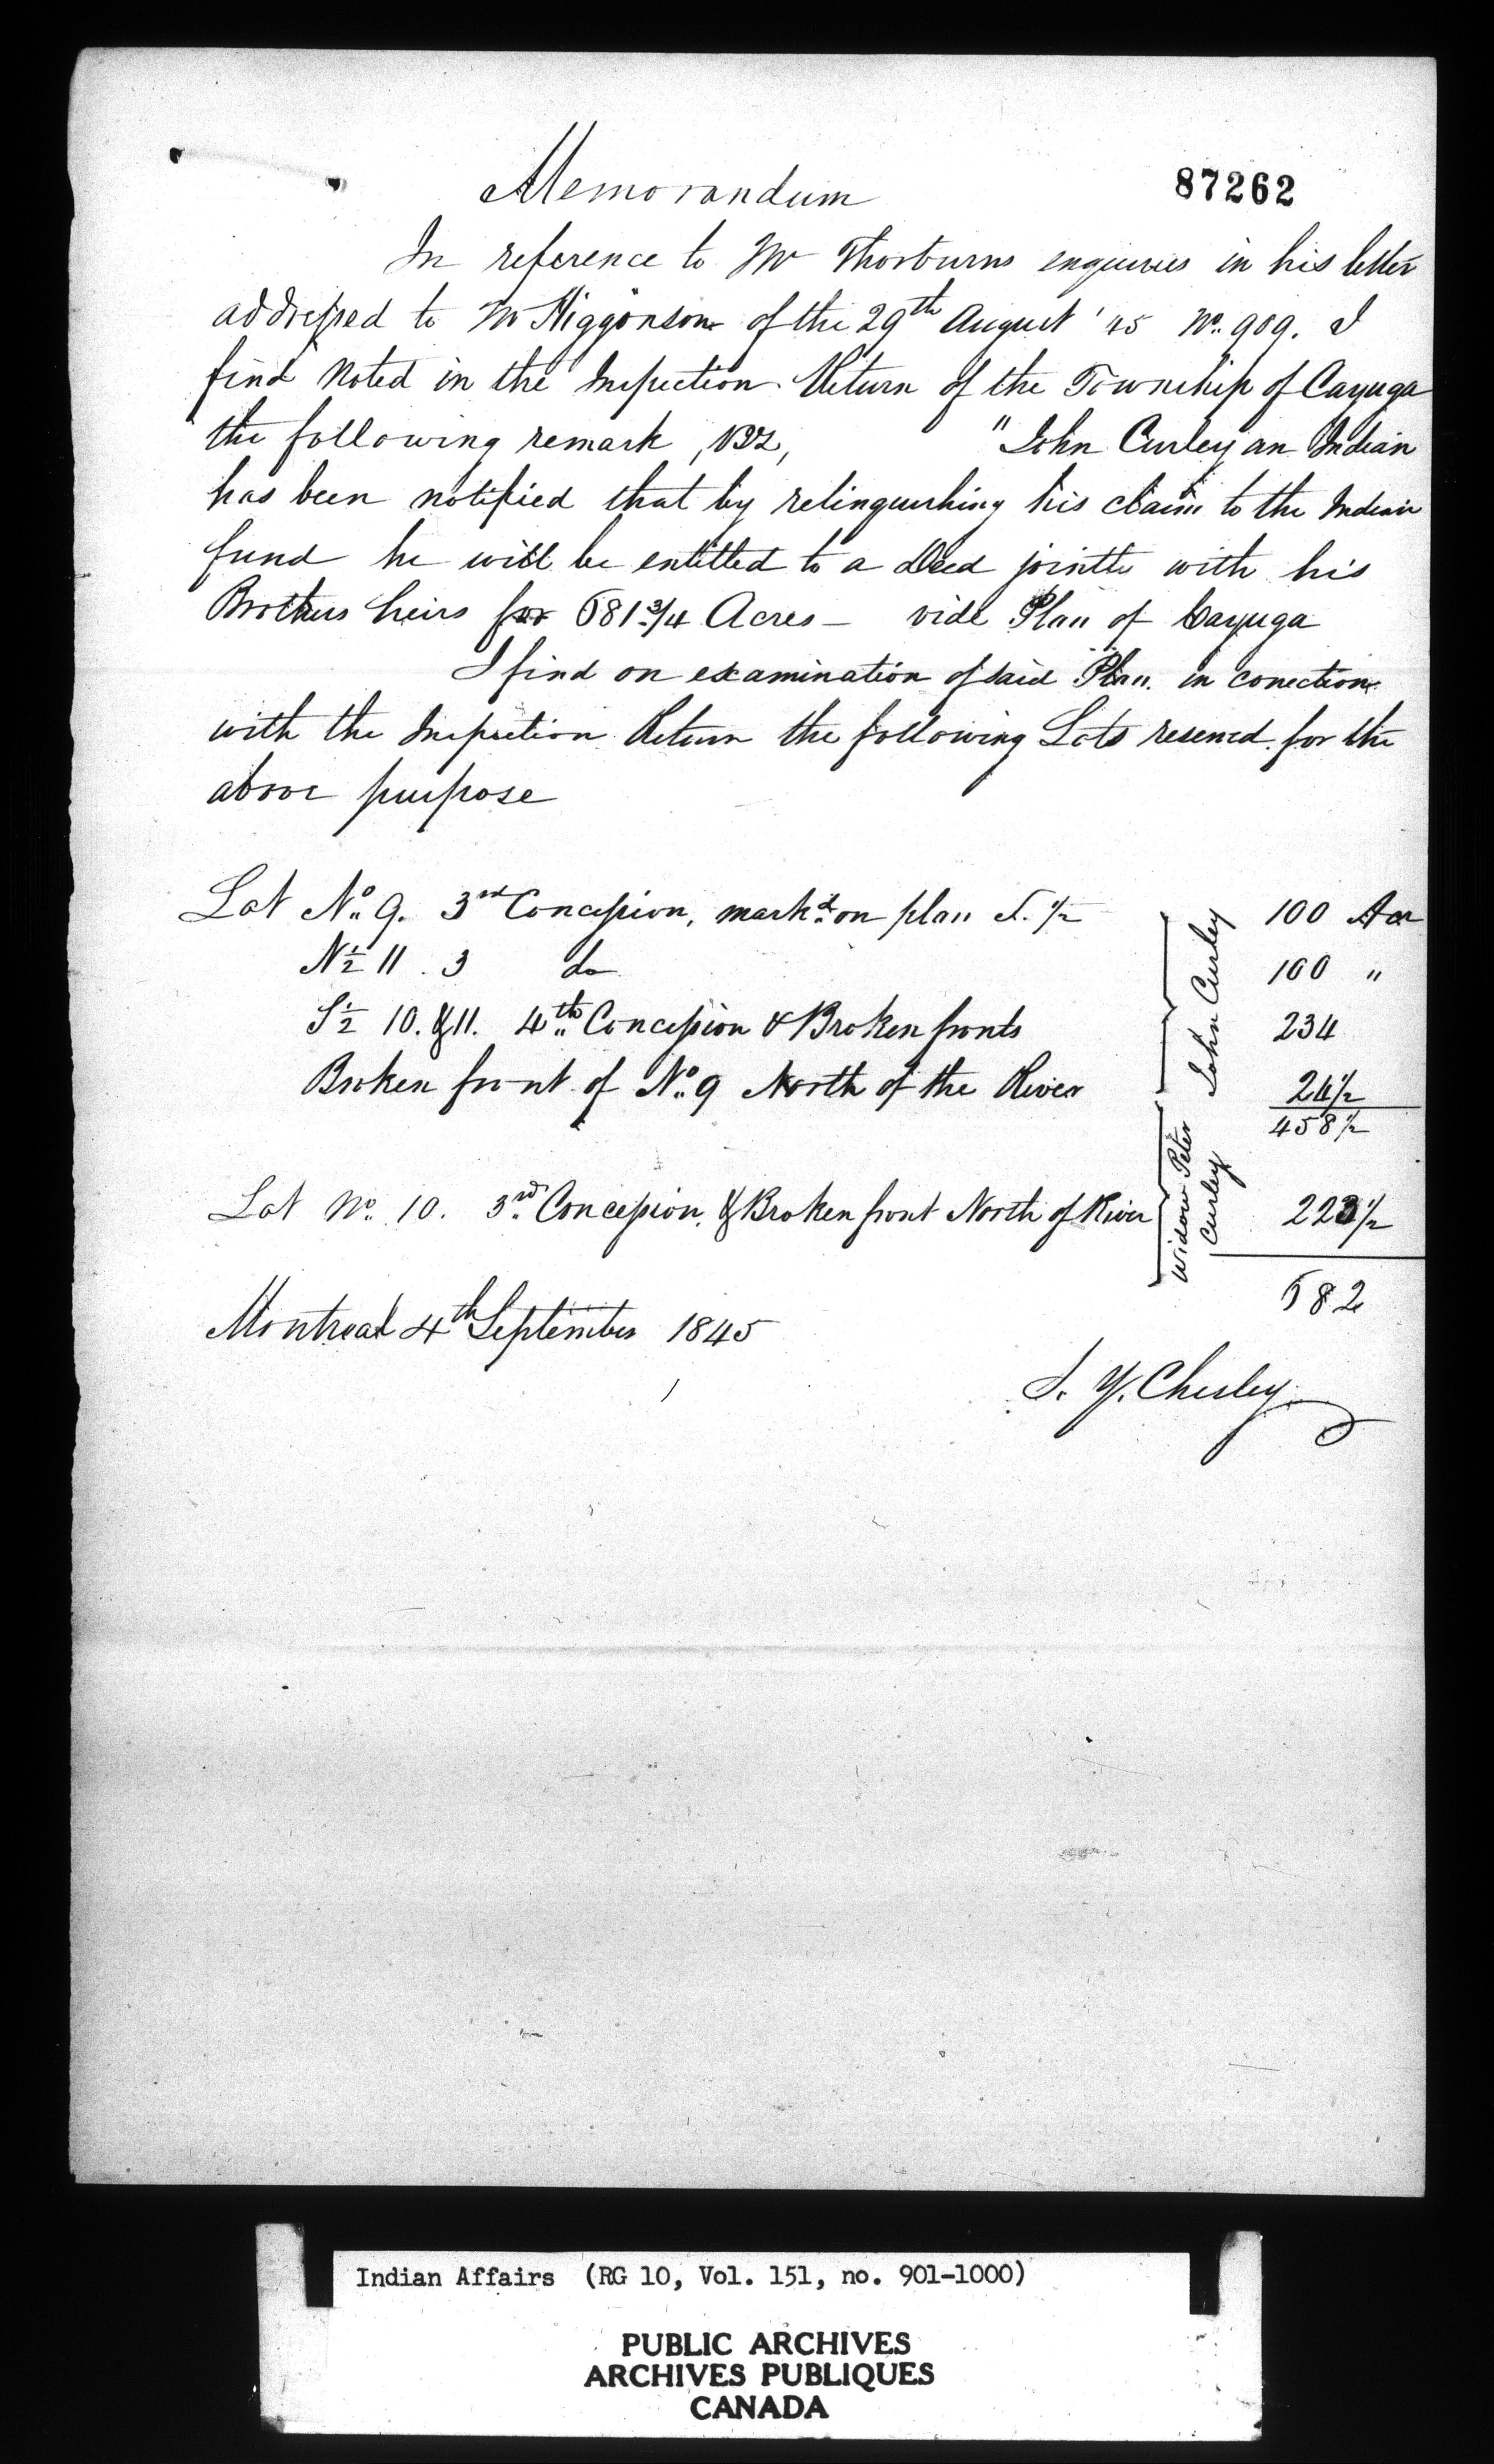 Memorandum 87262
In reference to Mr Thorburns enquiries in his letter
addressed to Mr Higginson of the 29th August '45 No. 909. I
find noted in the Inspection Return of the Township of Cayuga
the following remark, viz, "John Curley an Indian
has been notified that by relinquishing his claim to the Indian
fund he will be entitled to a Deed jointly with his
Brothers heirs for 681 3/4 Acres – vide Plan of Cayuga
I find on examination of said Plan in conection
with the Inspection Return the following Lots reserved for the
above purpose
Lot No. 9. 3rd Concession, markd on plan S. 1/2 100 Acr
N 1/2 11. 3 do 100 "
S 1/2 10. & 11. 4th Concession & Broken fronts 234
Broken front of No. 9 North of the River 24 1/2
458 1/2
John Curley
Lot No. 10. 3rd Concession & Broken front North of River 223 1/2
Widow Peter
Curley
682
Montreal 4th September 1845
S. Y. Chesley
Indian Affairs (RG 10, Vol. 151, no. 901-1000)
PUBLIC ARCHIVES
ARCHIVES PUBLIQUES
CANADA